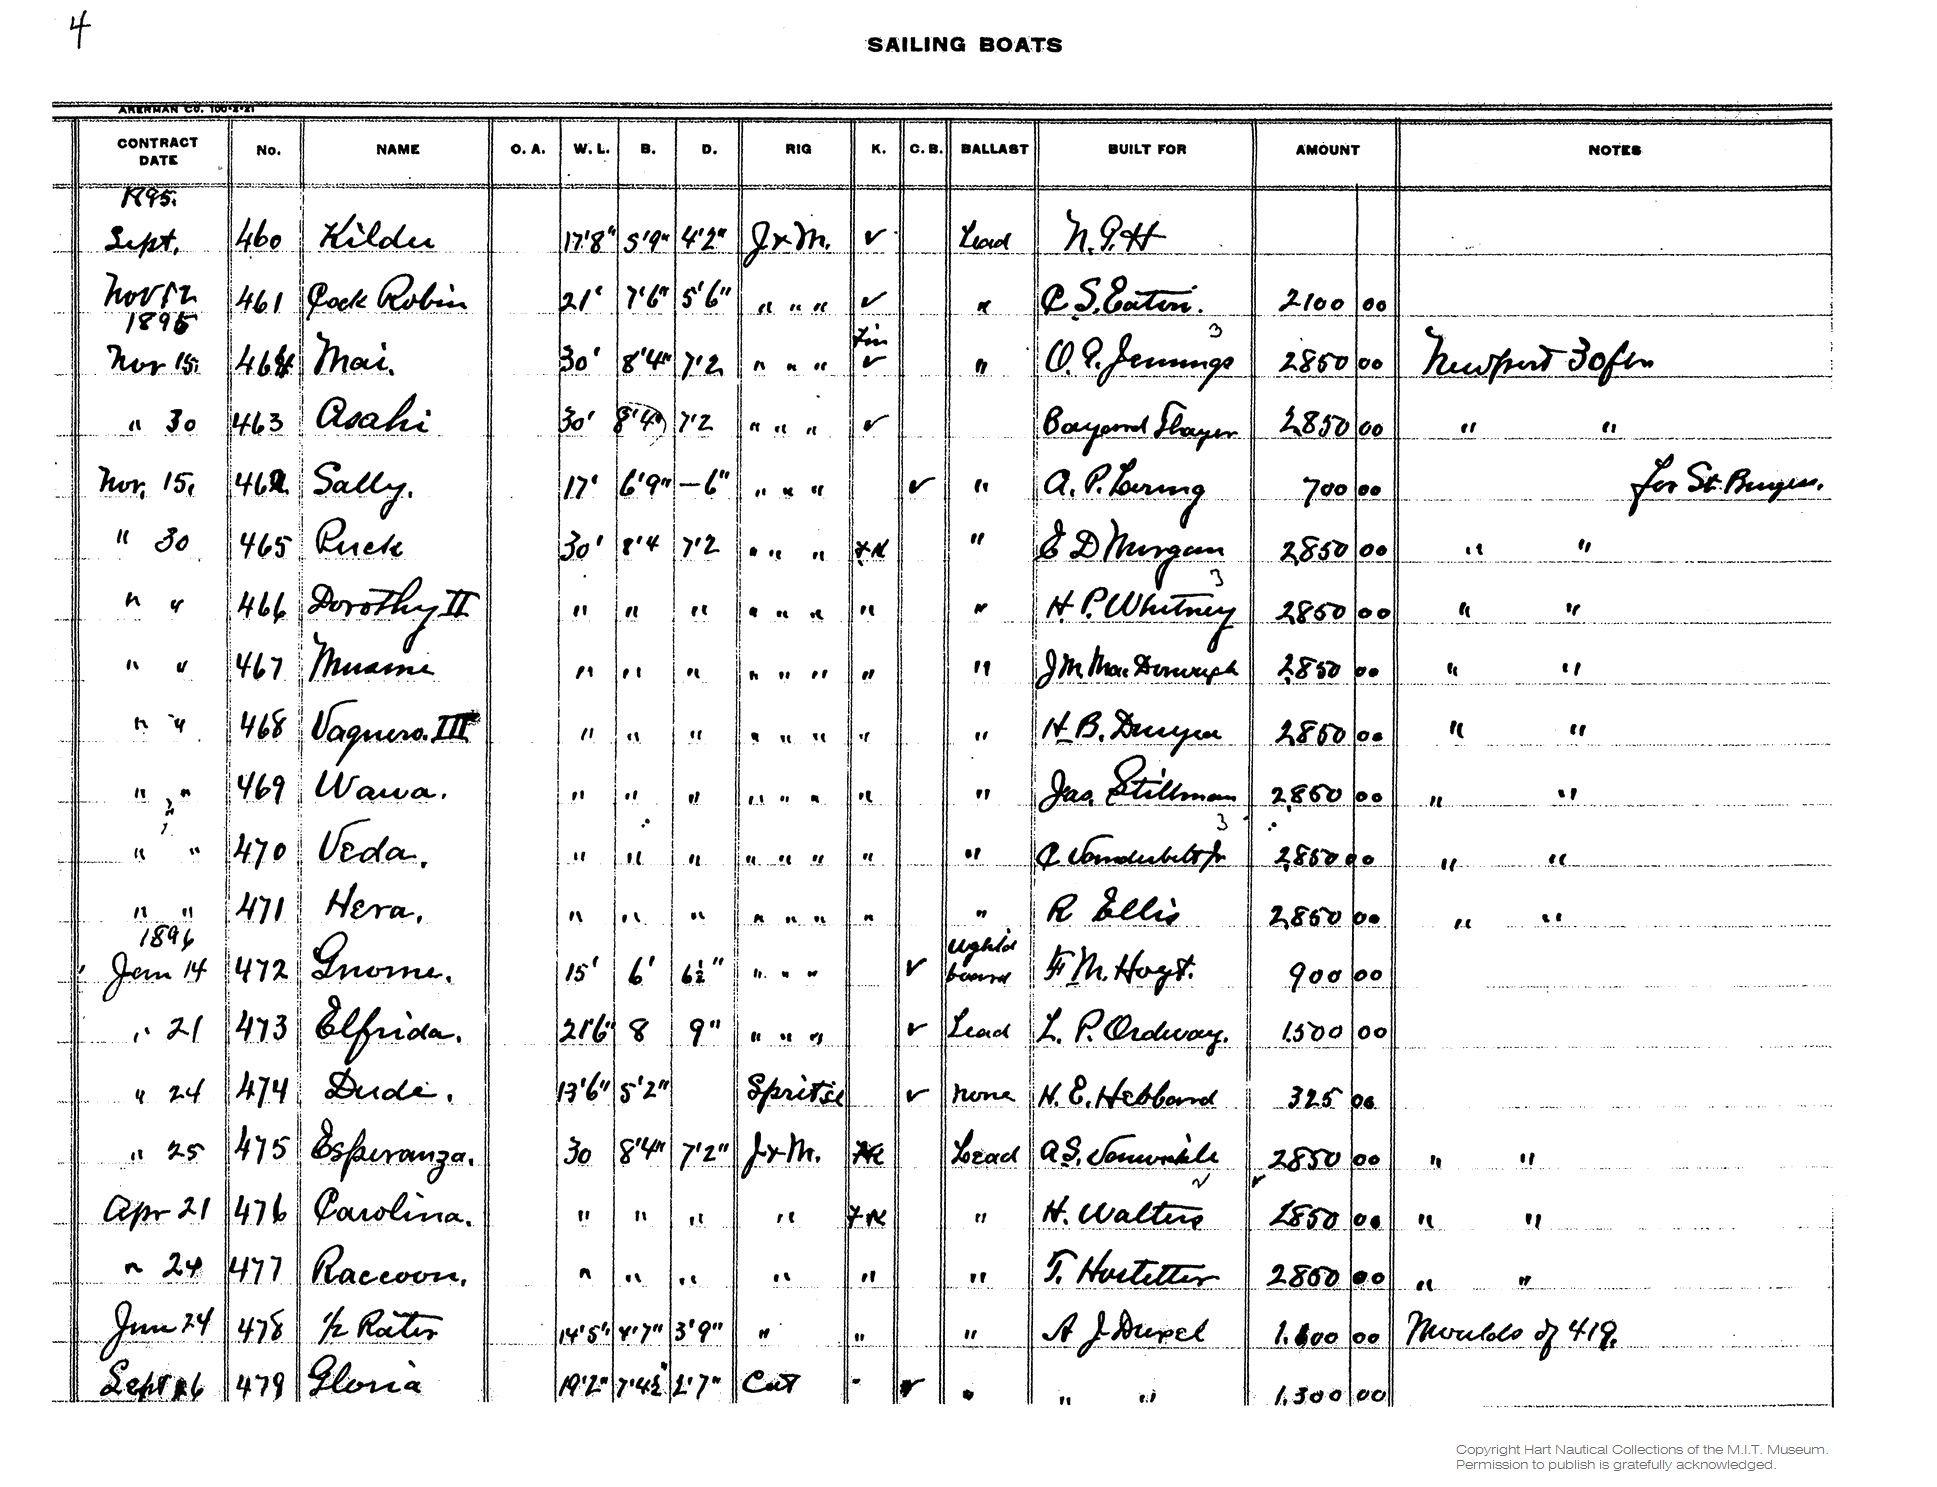 4
SAILING BOATS
AKERMAN CO. 100-2-21
CONTRACT DATE No. NAME O. A. W. L. B. D. RIG K. C. B. BALLAST BUILT FOR AMOUNT NOTES
1895.
Sept. 460 Kildee 17'8" 5'9" 4'2" J & M. ✓ Lead N.G.H
Nov 12 461 Cock Robin 21' 7'6" 5'6" " " " ✓ " C S. Eaton. 2100 00
1895
Nov 15. 464 Mai. 30' 8'4" 7'2 " " " Fin ✓ " O. G. Jennings 3 2850 00 Newport 30 ftr
" 30 463 Asahi 30' 8'4" 7'2 " " " ✓ Bayard Thayer 2850 00 " "
Nov. 15. 462 Sally. 17' 6'9" – 6" " " " ✓ " A. P. Loring 700 00 for St. Burgess.
" 30 465 Puck 30' 8'4 7'2 " " " FK " E D Morgan 2850 00 " "
" " 466 Dorothy II " " " " " " " " H. P. Whitney 3 2850 00 " "
" " 467 Musme " " " " " " " " J M. MacDonough 2850 00 " "
" " 468 Vaquero. III " " " " " " " " H. B. Duryea 2850 00 " "
" " 469 Wawa. " " " " " " " " Jas. Stillman 2850 00 " "
" " 470 Veda. " " " " " " " " C Vanderbilt Jr 3 2850 00 " "
" " 471 Hera. " " " " " " " " R Ellis 2850 00 " "
1896
Jan 14 472 Gnome. 15' 6' 6½" " " " ✓ board F. M. Hoyt. 900 00
" 21 473 Elfrida. 21'6" 8 9" " " " ✓ Lead L. P. Ordway. 1500 00
" 24 474 Dude. 13'6" 5'2" Spritsl ✓ none H. E. Hebbard 325 00
" 25 475 Esperanza. 30 8'4" 7'2" J & M. FK Lead A S. Vanwinkle 2850 00 " "
Apr 21 476 Carolina. " " " " FK " H. Walters 2850 00 " "
" 24 477 Raccoon. " " " " " " T. Hostetter 2850 00 " "
Jun 24 478 ½ Rater 14'5" 4'7" 3'9" " " " A J Drexel 1.600 00 Moulds of 419.
Sept 26 479 Gloria 19'2" 7'4½" 2'7" Cat - ✓ " " " 1.300 00
Copyright Hart Nautical Collections of the M.I.T. Museum.
Permission to publish is gratefully acknowledged.